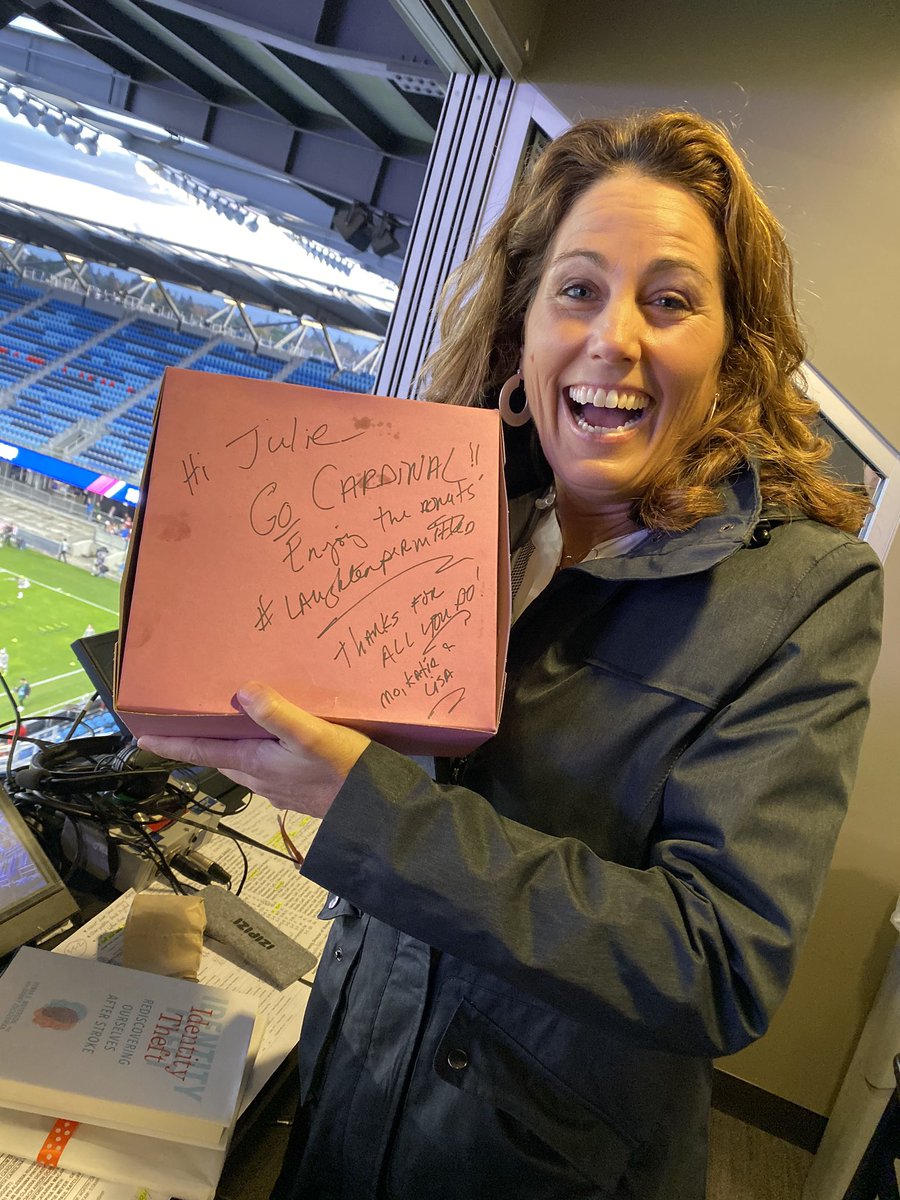 Hi Julie
Go CARDINAL!!
Enjoy the Donuts
#LAughtenpermitted
THANKS FOR
ALL YOU DO!
MO, KATIE &
LISA
IZIPIZI
Identity
Theft
REDISCOVERING
OURSELVES
AFTER STROKE